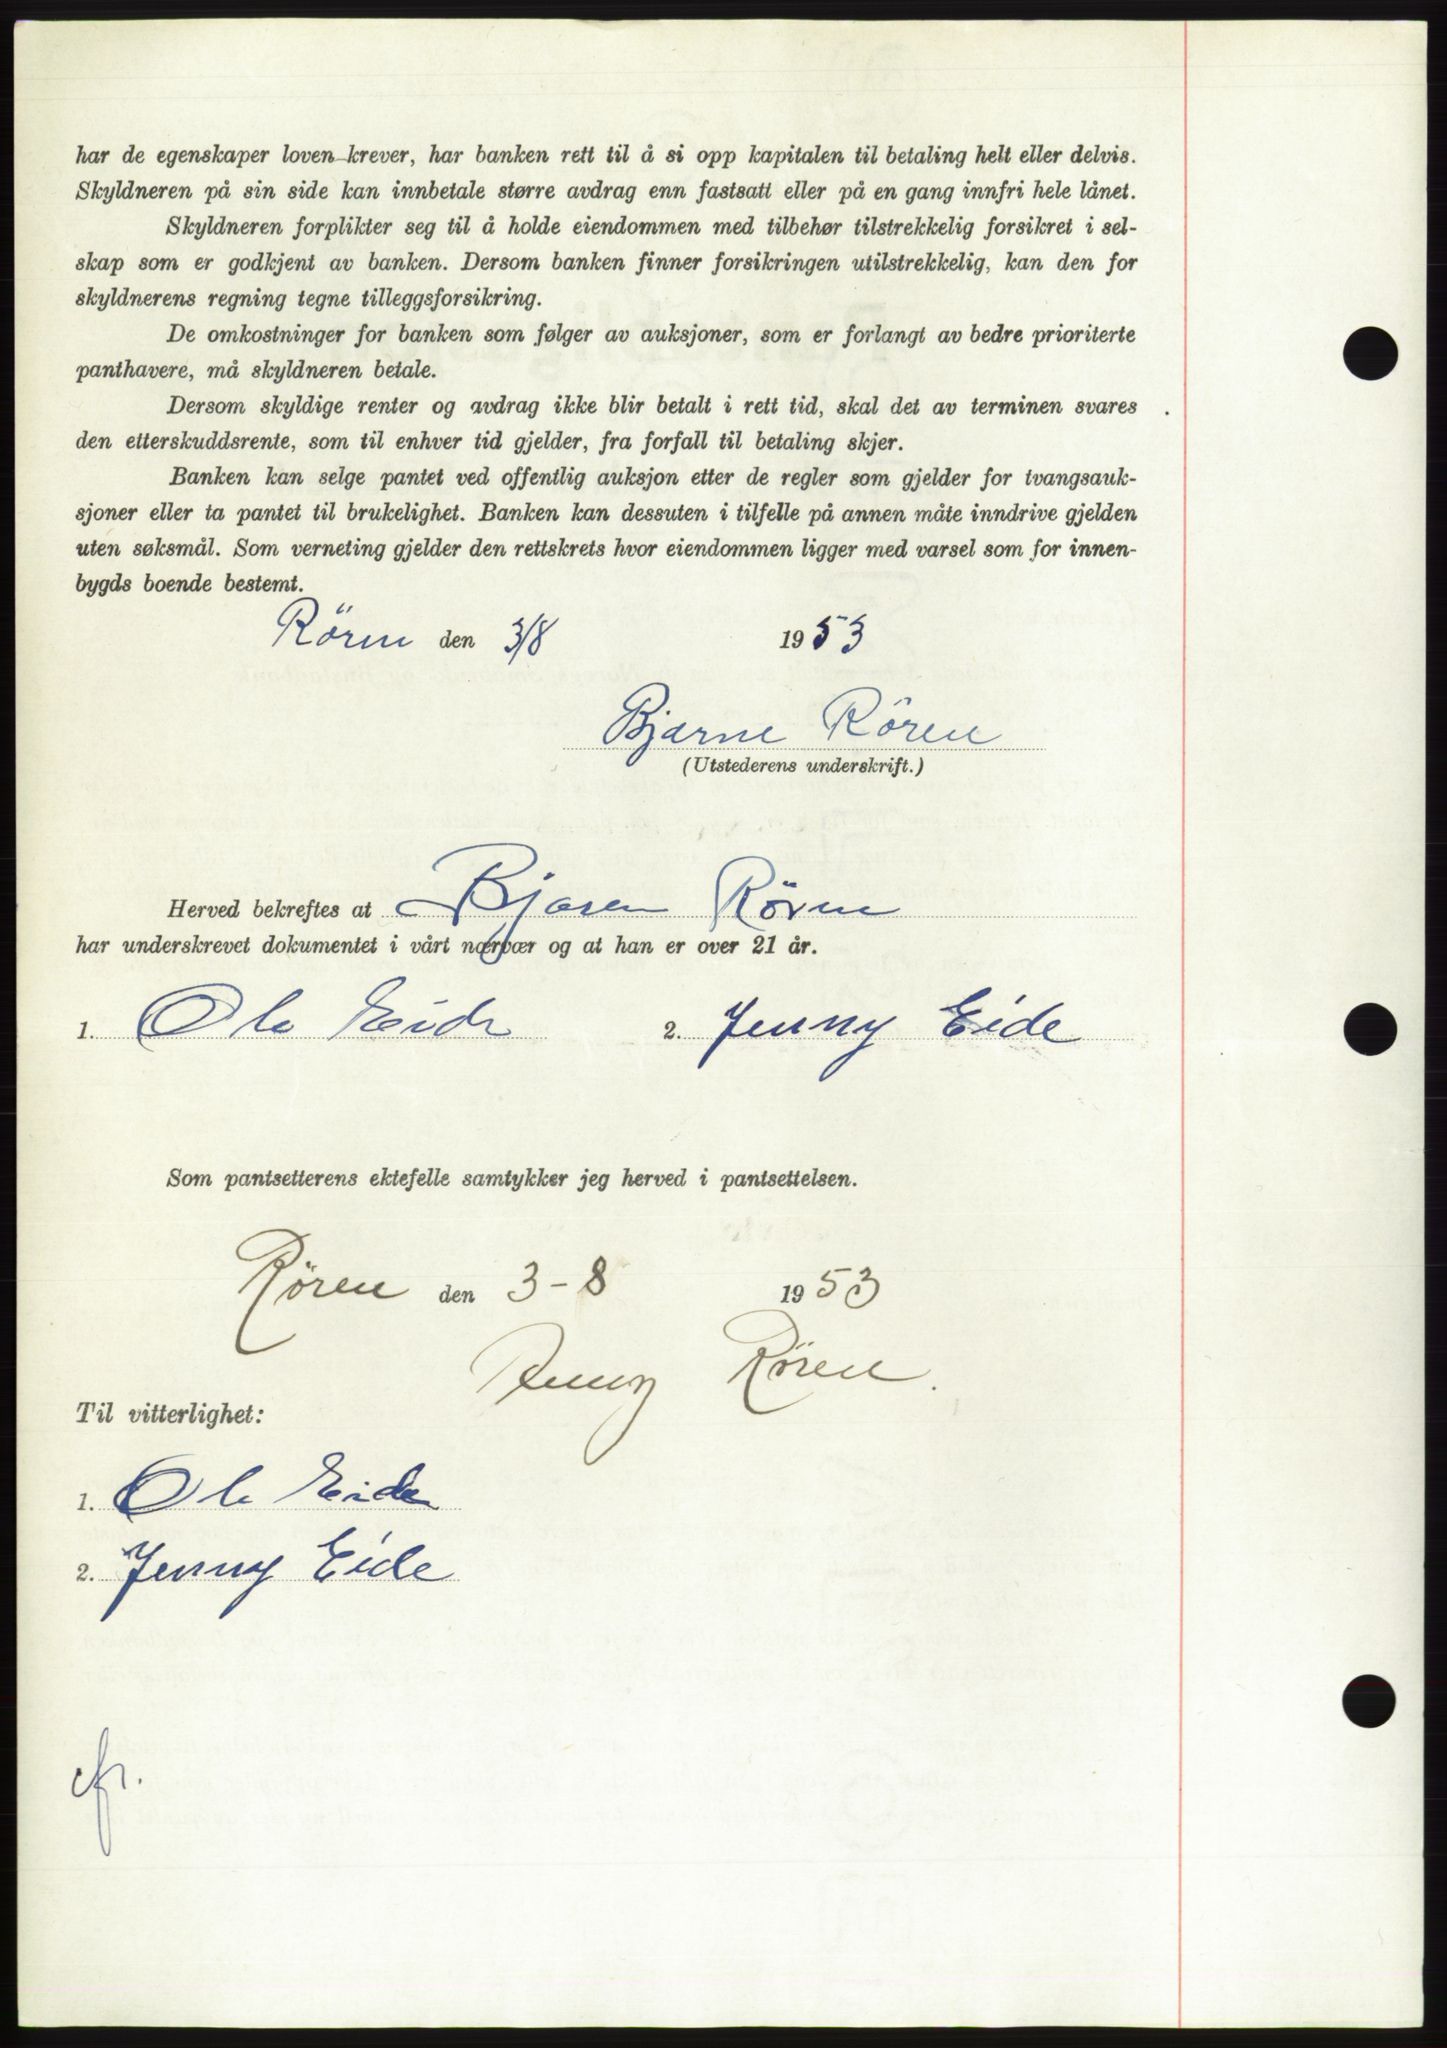 har de egenskaper loven krever, har banken rett til å si opp kapitalen til betaling helt eller delvis.
Skyldneren på sin side kan innbetale større avdrag enn fastsatt eller på en gang innfri hele lånet.
Skyldneren forplikter seg til å holde eiendommen med tilbehør tilstrekkelig forsikret i sel-
skap som er godkjent av banken. Dersom banken finner forsikringen utilstrekkelig, kan den for
skyldnerens regning tegne tilleggsforsikring.
De omkostninger for banken som følger av auksjoner, som er forlangt av bedre prioriterte
panthavere, må skyldneren betale.
Dersom skyldige renter og avdrag ikke blir betalt i rett tid, skal det av terminen svares
den etterskuddsrente, som til enhver tid gjelder, fra forfall til betaling skjer.
Banken kan selge pantet ved offentlig auksjon etter de regler som gjelder for tvangsauk-
sjoner eller ta pantet til brukelighet. Banken kan dessuten i tilfelle på annen måte inndrive gjelden
uten søksmål. Som verneting gjelder den rettskrets hvor eiendommen ligger med varsel som for innen-
bygds boende bestemt.
Rören den 3/8 1953
Bjarne Rören
(Utstederens underskrift.)
Herved bekreftes at Bjaren Rören
har underskrevet dokumentet i vårt nærvær og at han er over 21 år.
1. Ole Eide 2. Jenny Eide
Som pantsetterens ektefelle samtykker jeg herved i pantsettelsen.
Røren den 3-8 1953
Røren.
Til vitterlighet:
1. Ole Eide
2. Jenny Eide